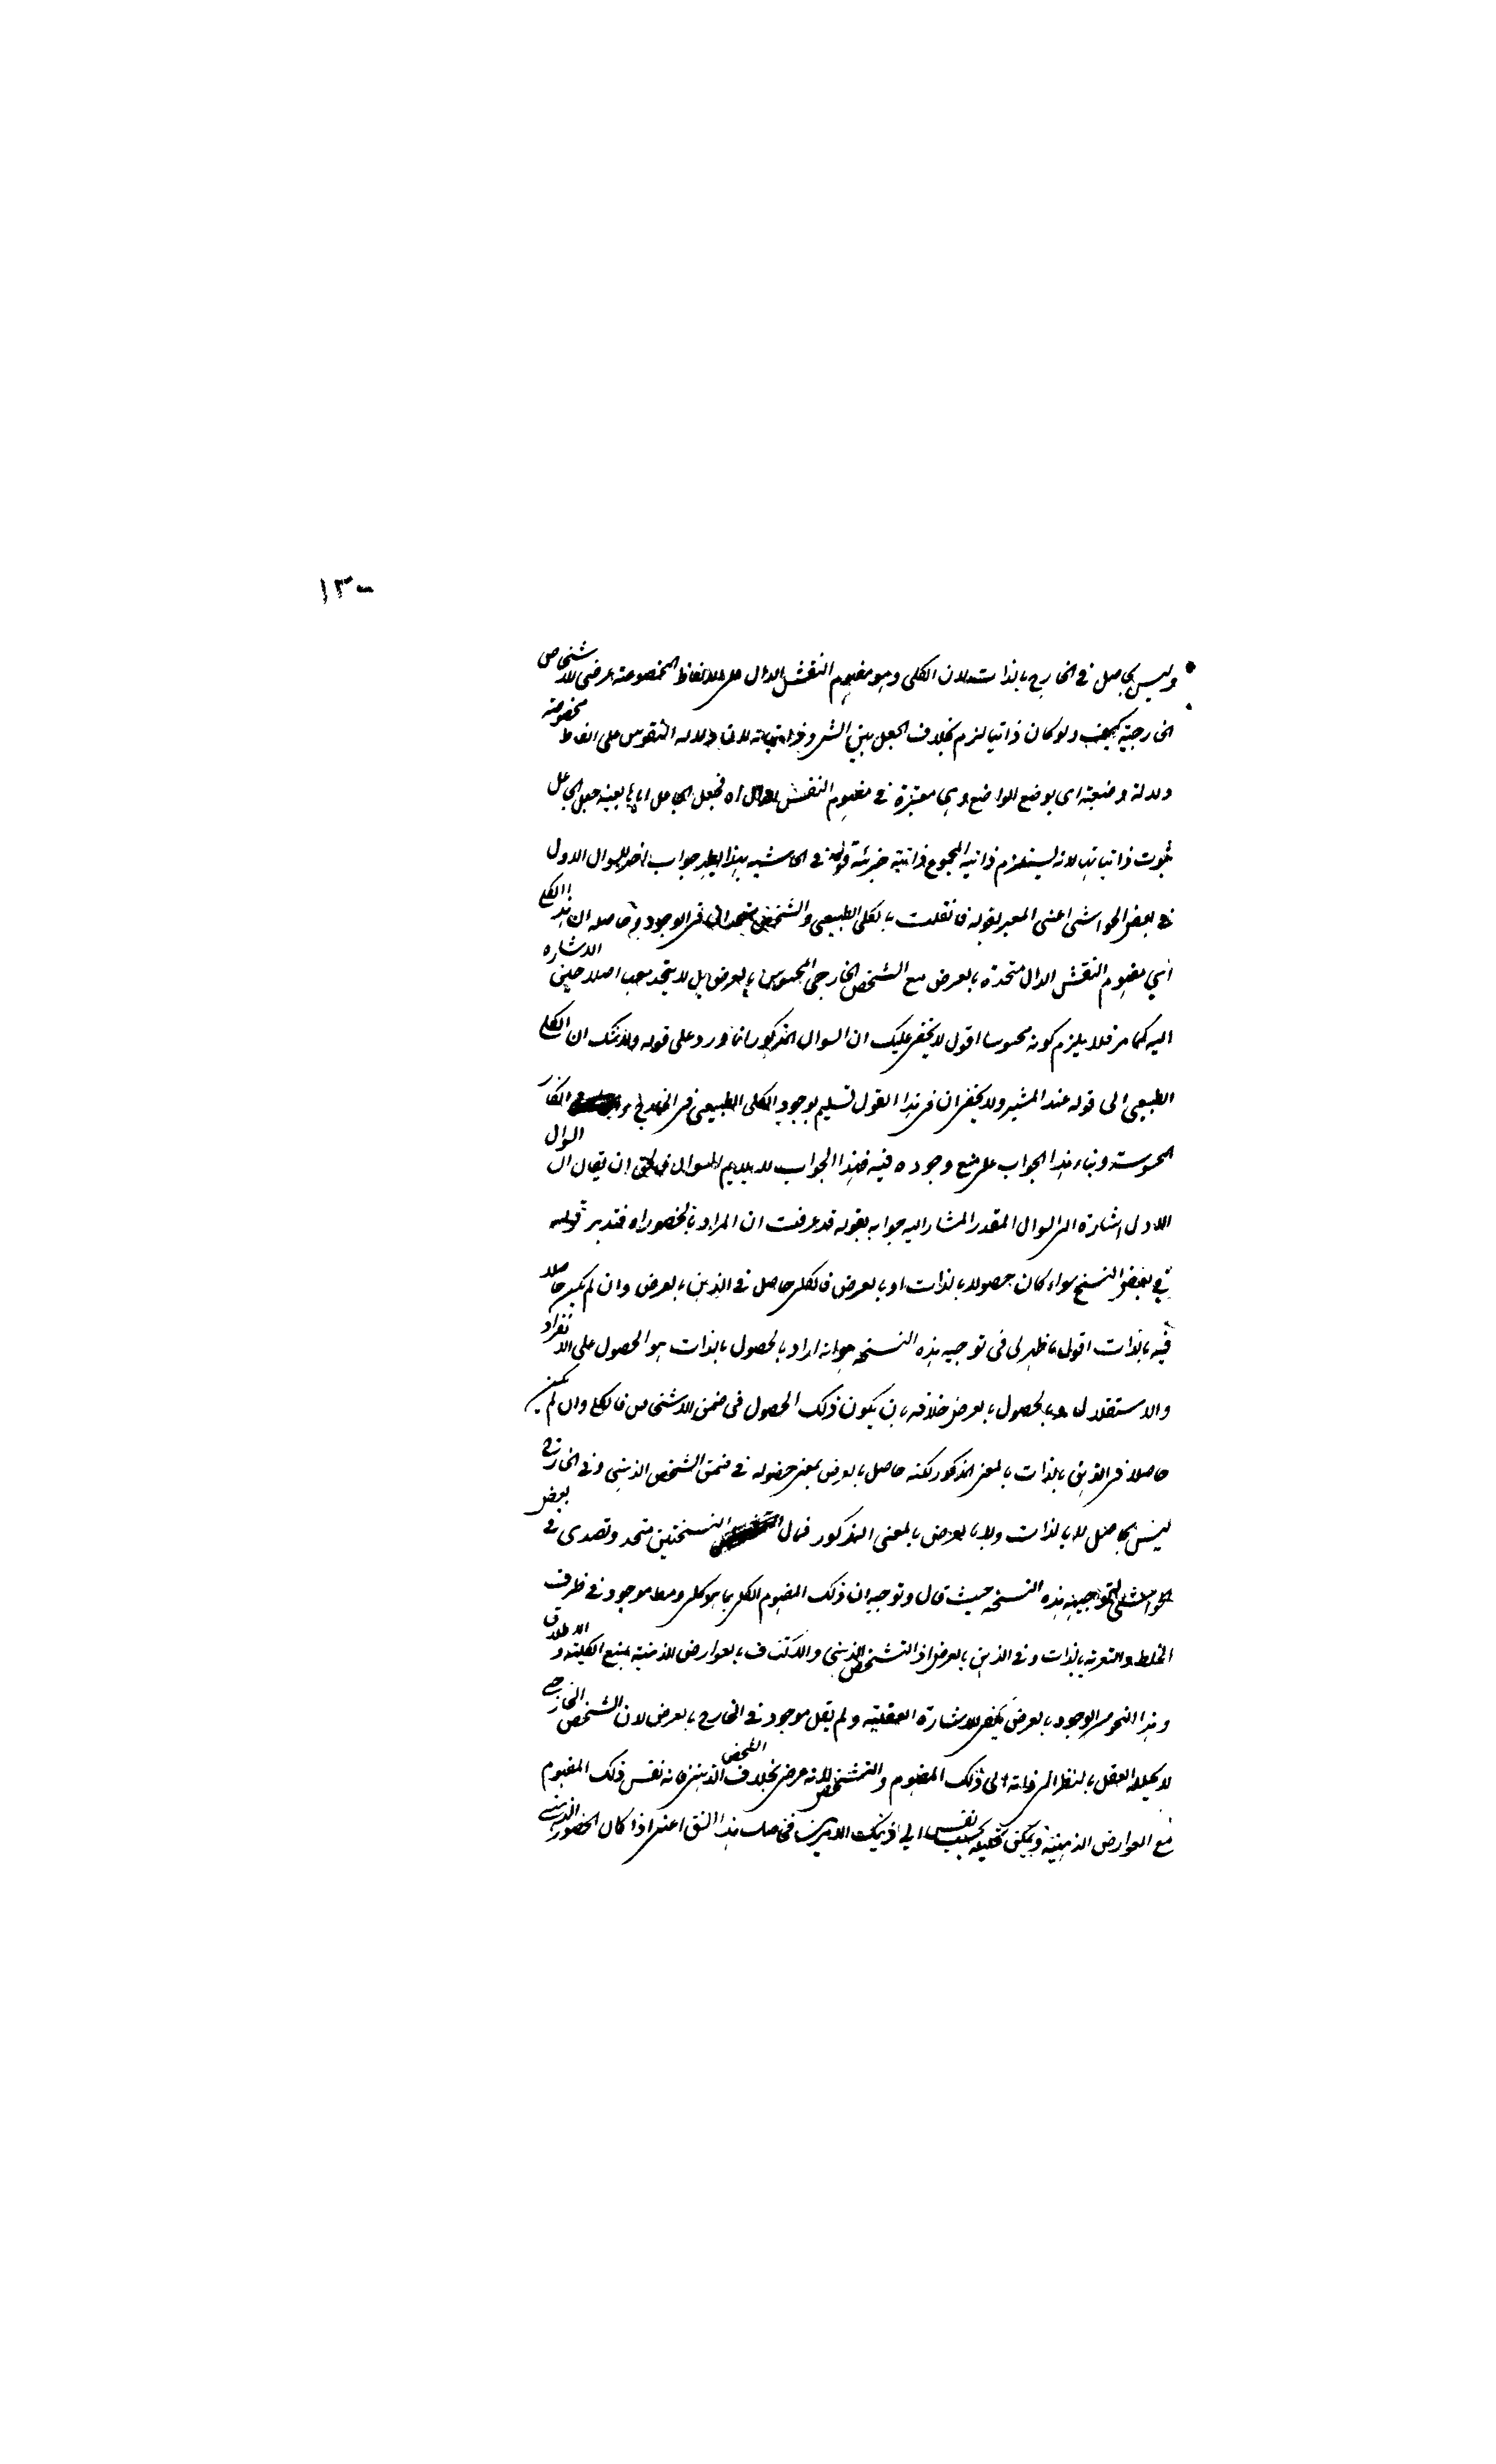 ١٣٠
وليس بحاصل فى الخارج بالذات لان الكلى وهو مفهوم النقش الدال على الالفاظ المخصوصة عرضى للاشخاص
الخارجية كيف ولو كان ذاتيا لزم تخلاف الجعل بين الشى وذاتياته لان دلاله النقوش على الفاظ مخصوصة
دلالة وضعية اى بوضع الواضع وهى معتبرة فى مفهوم النقش الدال اه فجعل الجاعل اياها بعينه جعل الجاعل
ثبوت ذاتياتها لانه يستلزم ذاتية المجموع ذاتية جزئه قوله فى الحاشيه بهذا يظهر جواب اخر للسوال الاول
فى بعض الحواشى اعنى المعبر بقوله فان قلت الكلى الطبيعى والشخص متحدان فى الوجود وحاصله ان هذا الكلى
اى مفهوم النقش الدال متحدة بالعرض مع الشخص الخارجى المحسوس بالعرض بل لا يتحد معه اصلا حين الاشاره
اليه كما مر فلا يلزم كونه محسوسا اقول لا يخفى عليك ان السوال المذكور انما ورد على قوله ولا شك ان الكلى
الطبيعى الى قوله عند المشير ولا يخفى ان فى هذا القول تسليم بوجود الكلى الطبيعى فى الخارج
المحسوسة وبناء هذا الجواب على منع وجوده فيه فهذا الجواب لا يلايم السوال فالحق ان يقال ان السوال
الاول اشارة الى السوال المقدر المشار اليه جوابه بقوله قد عرفت ان المراد بالحضور اه فتدبر قوله
فى بعض النسخ سواء كان حصولا بالذات او بالعرض فالكلى حاصل فى الذهن بالعرض وان لم يكن حاصلا
فيه بالذات اقول ما ظهر لى فى توجيه هذه النسخه هو انه اراد بالحصول بالذات هو الحصول على الانفراد
والاستقلال وبالحصول بالعرض خلافه بان يكون ذلك الحصول فى ضمن الاشخاص فالكلى وان لم يكن
حاصلا فى الذهن بالذات بالمعنى المذكور لكنه حاصل بالعرض بمعنى حصوله فى ضمن الشخص الذهنى وفى الخارج
ليس بحاصل لا بالذات ولا بالعرض بالمعنى المذكور فمال النسختين متحد وتصدى فى بعض
الحواشى لتوجيه هذه النسخه حيث قال وتوجيه ان ذلك المفهوم الكلى بما هو كلى ومطلق موجود فى ظرف
الخلط والتعرية بالذات وفى الذهن بالعرض اذ التشخص الذهنى والاكتناف بالعوارض الذهنية يمنع الكلية والاطلاق
وهذا النحو من الوجود بالعرض يكفى للاشارة العقلية ولم يقل موجود فى الخارج بالعرض لان الشخص الخارجى
لا يحيله العقل بالنظر الى ذاته الى ذلك المفهوم والتشخص لانه عرضى بخلاف الشخص الذهنى فانه نفس ذلك المفهوم
مع العوارض الذهنية ويمكن تحليله بحسب نفسه الى ذينك الامرين فحاصل هذا الشق اعنى اذا كان الحضور الذهنى